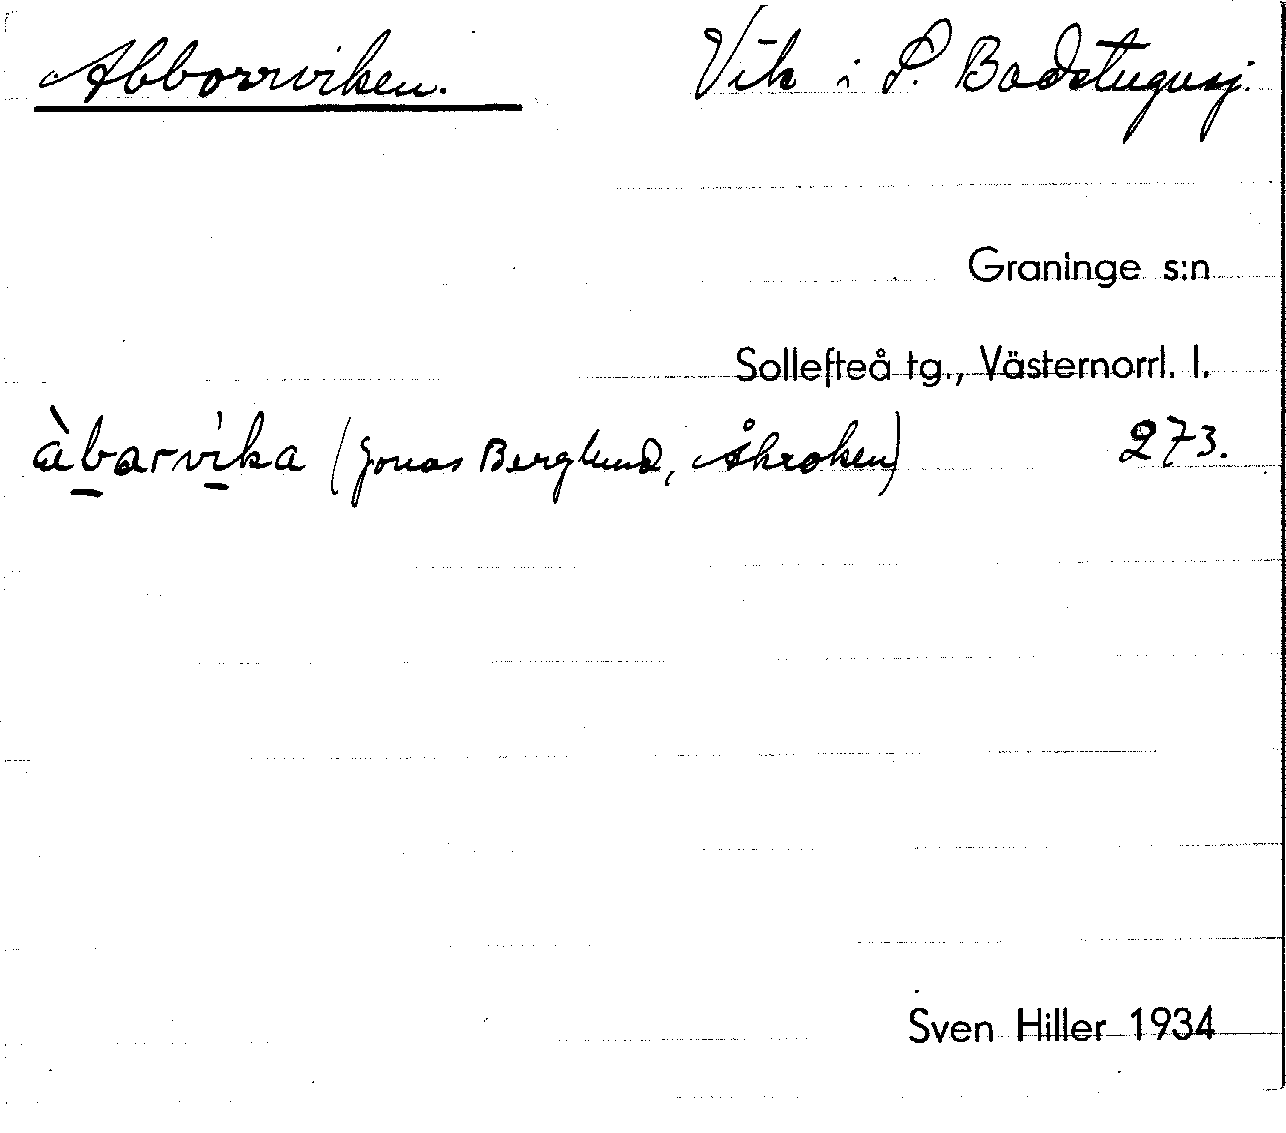 Abborrviken. Vik i S. Badstugusj.
Graninge s:n
Sollefteå tg., Västernorrl. l.
àbarvika (Jonas Berglund, Åkroken) 273.
Sven Hiller 1934